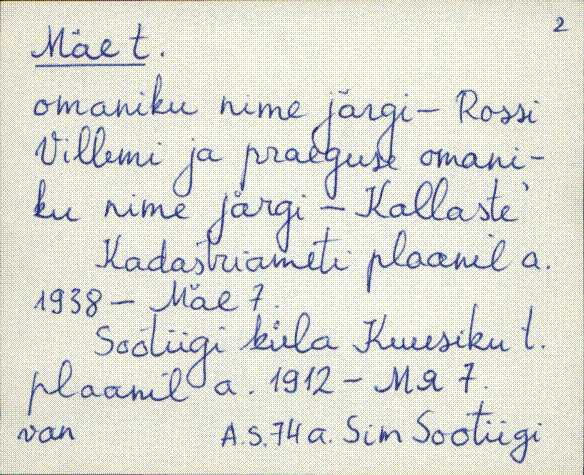 2
Mäe t.
omaniku nime järgi – Rossi
Villemi ja praeguse omani-
ku nime järgi – Kallaste'
Kadastriameti plaanil a.
1938 – Mäe 7.
Sootiigi küla Kuusiku t.
plaanil a. 1912 – Мя 7.
van A.S. 74 a. Sim Sootiigi